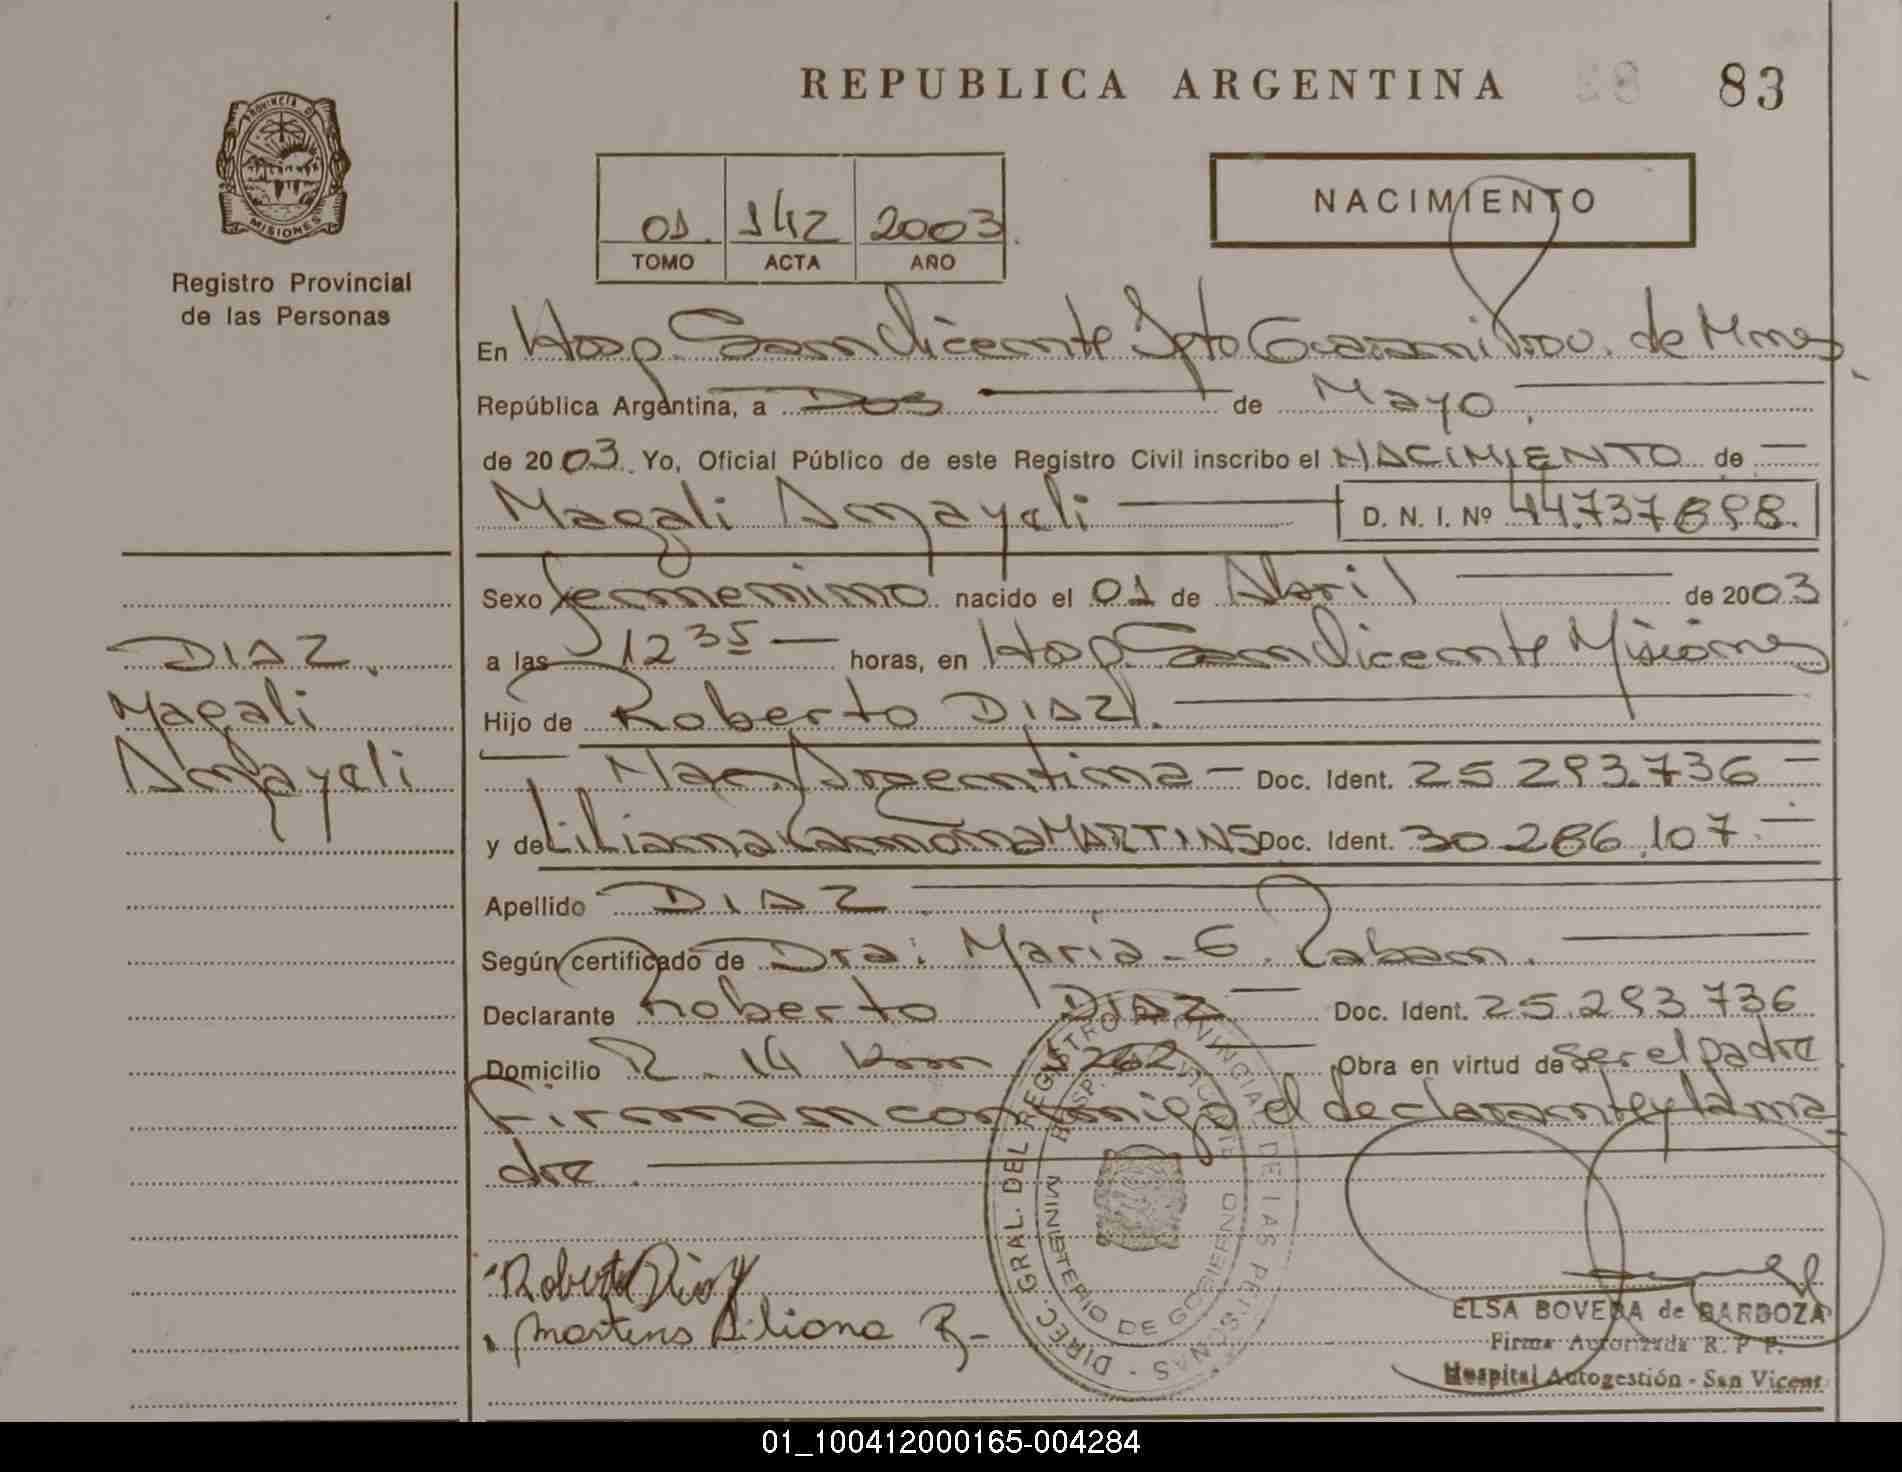 REPUBLICA ARGENTINA 83
PROVINCIA DE
MISIONES
Registro Provincial
de las Personas
01 142 2003
TOMO ACTA AÑO
NACIMIENTO
En Hosp. San Vicente Dpto Guarani Prov. de Mnes
República Argentina, a Dos de Mayo
de 2003. Yo, Oficial Público de este Registro Civil inscribo el NACIMIENTO de
Magali Amayeli D. N. I. Nº 44.737.898.
Sexo femenino nacido el 01 de Abril de 2003
a las 12 35 horas, en Hosp San Vicente Misiones
Hijo de Roberto DIAZ.
Nac. Argentina - Doc. Ident. 25.293.736
y de Liliana Ramona MARTINS Doc. Ident. 30.286.107
Apellido DIAZ
Según certificado de Dra: Maria - E.
Declarante Roberto DIAZ Doc. Ident. 25.293.736
Domicilio R. 14 Km 1262 Obra en virtud de ser el padre
Firman conmigo el declarante y la ma
dre.
DIAZ
Magali
Amayeli
Roberto Diaz
Martins Liliana R-
DIREC. GRAL. DEL REGISTRO PROVINCIAL DE LAS PERSONAS
HOSP. SAN VICENTE
MINISTERIO DE GOBIERNO
ELSA BOVEDA de BARBOZA
Firma Autorizada R. P. P.
Hospital Autogestión - San Vicent
01_100412000165-004284